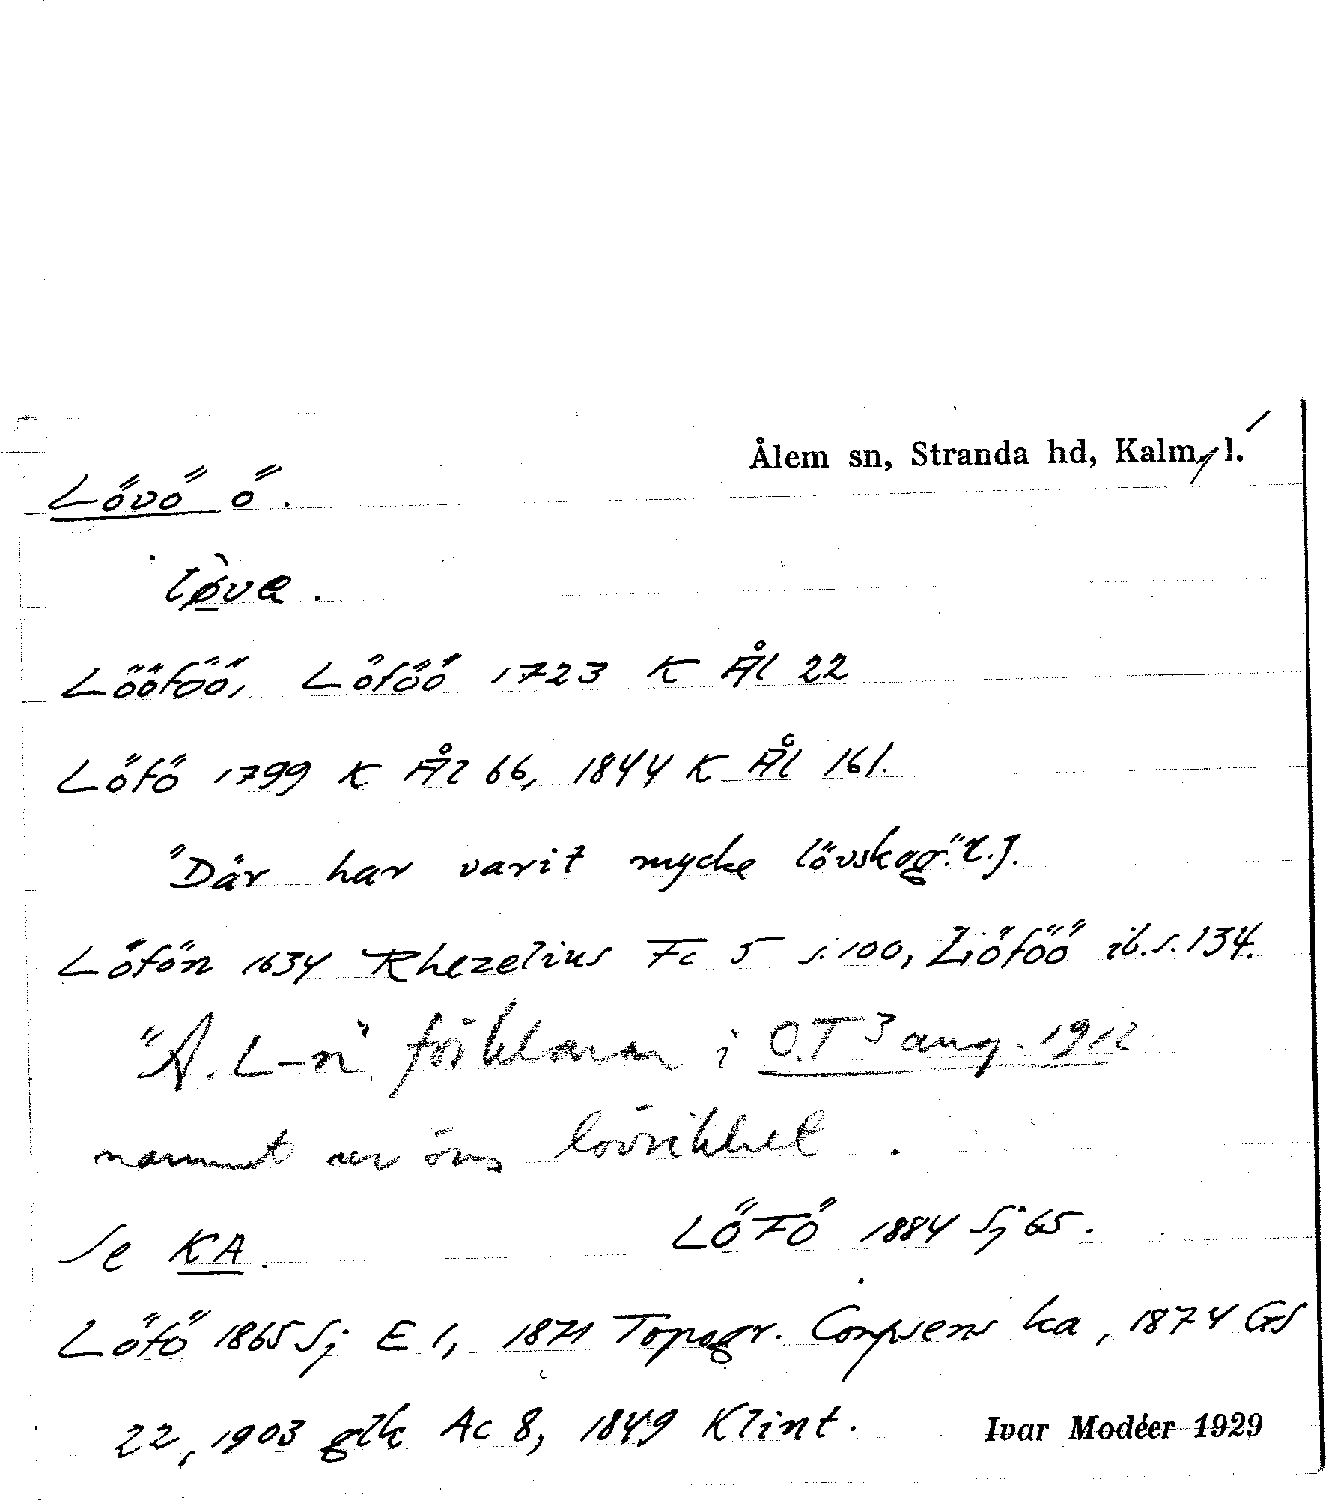 Ålem sn, Stranda hd, Kalm. l.
Lövö ö.
lø̀va.
Lööföö, Löföö 1723 K Ål 22
Löfö 1799 K Ål 66, 1844 K Ål 161.
"Där har varit mycke lövskog".
Löfön 1634 Rhezelius Fc 5 s. 100, Liöföö ib. s. 134.
"A. L-n" förklarar i O.T 3 aug. 1912
namnet av öns lövrikhet.
Se KA. LÖFÖ 1884 Sj 65.
Löfö 1865 Sj E 1, 1871 Topogr. Corpsens ka, 1874 GS
22, 1903 glk Ac 8, 1849 Klint.
Ivar Modéer 1929